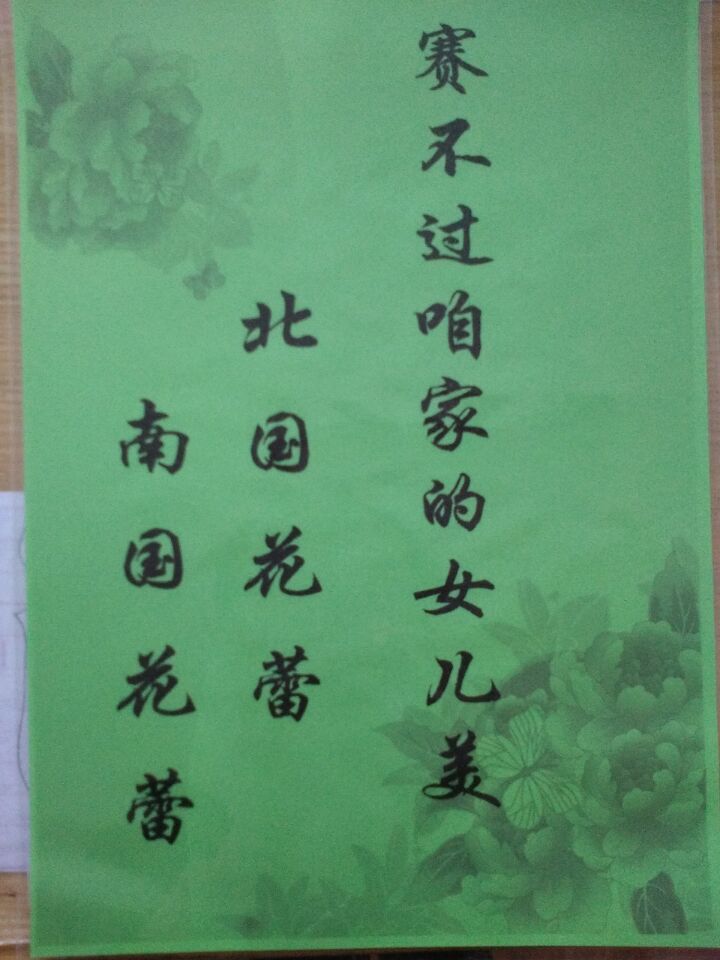 赛不过咱家的女儿美
北国花蕾
南国花蕾